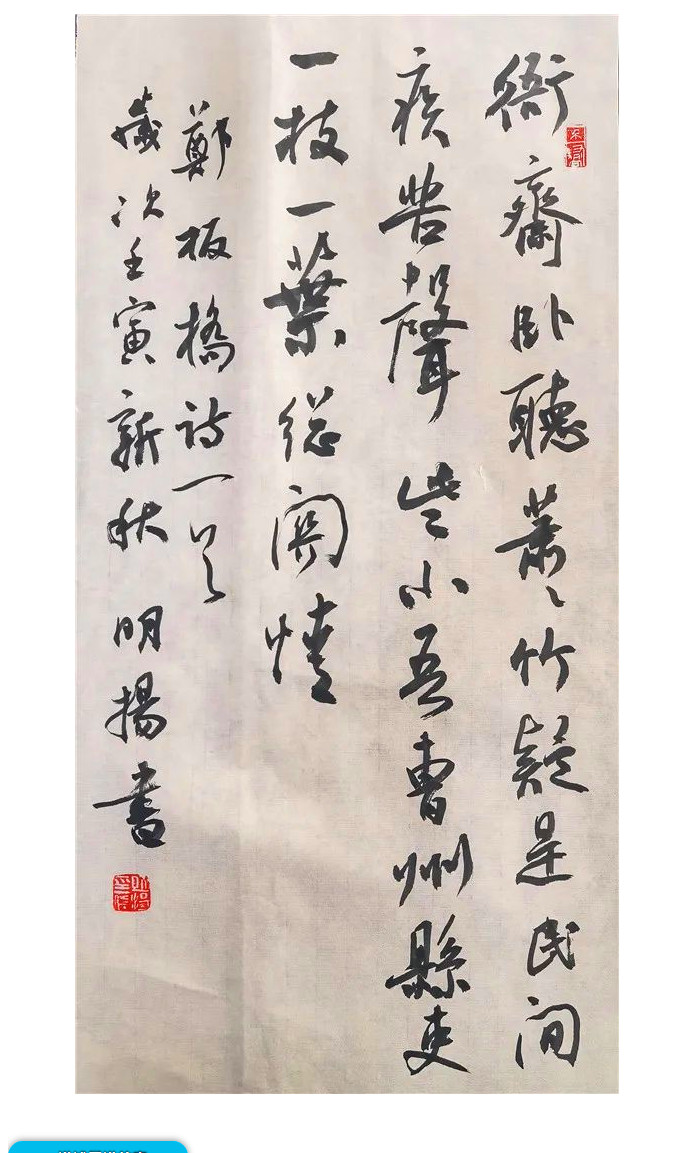 衙齋卧聽蕭〻竹疑是民間
疾苦聲些小吾曹州縣吏
一枝一葉總關情
鄭板橋詩一首
歲次壬寅新秋明揚書